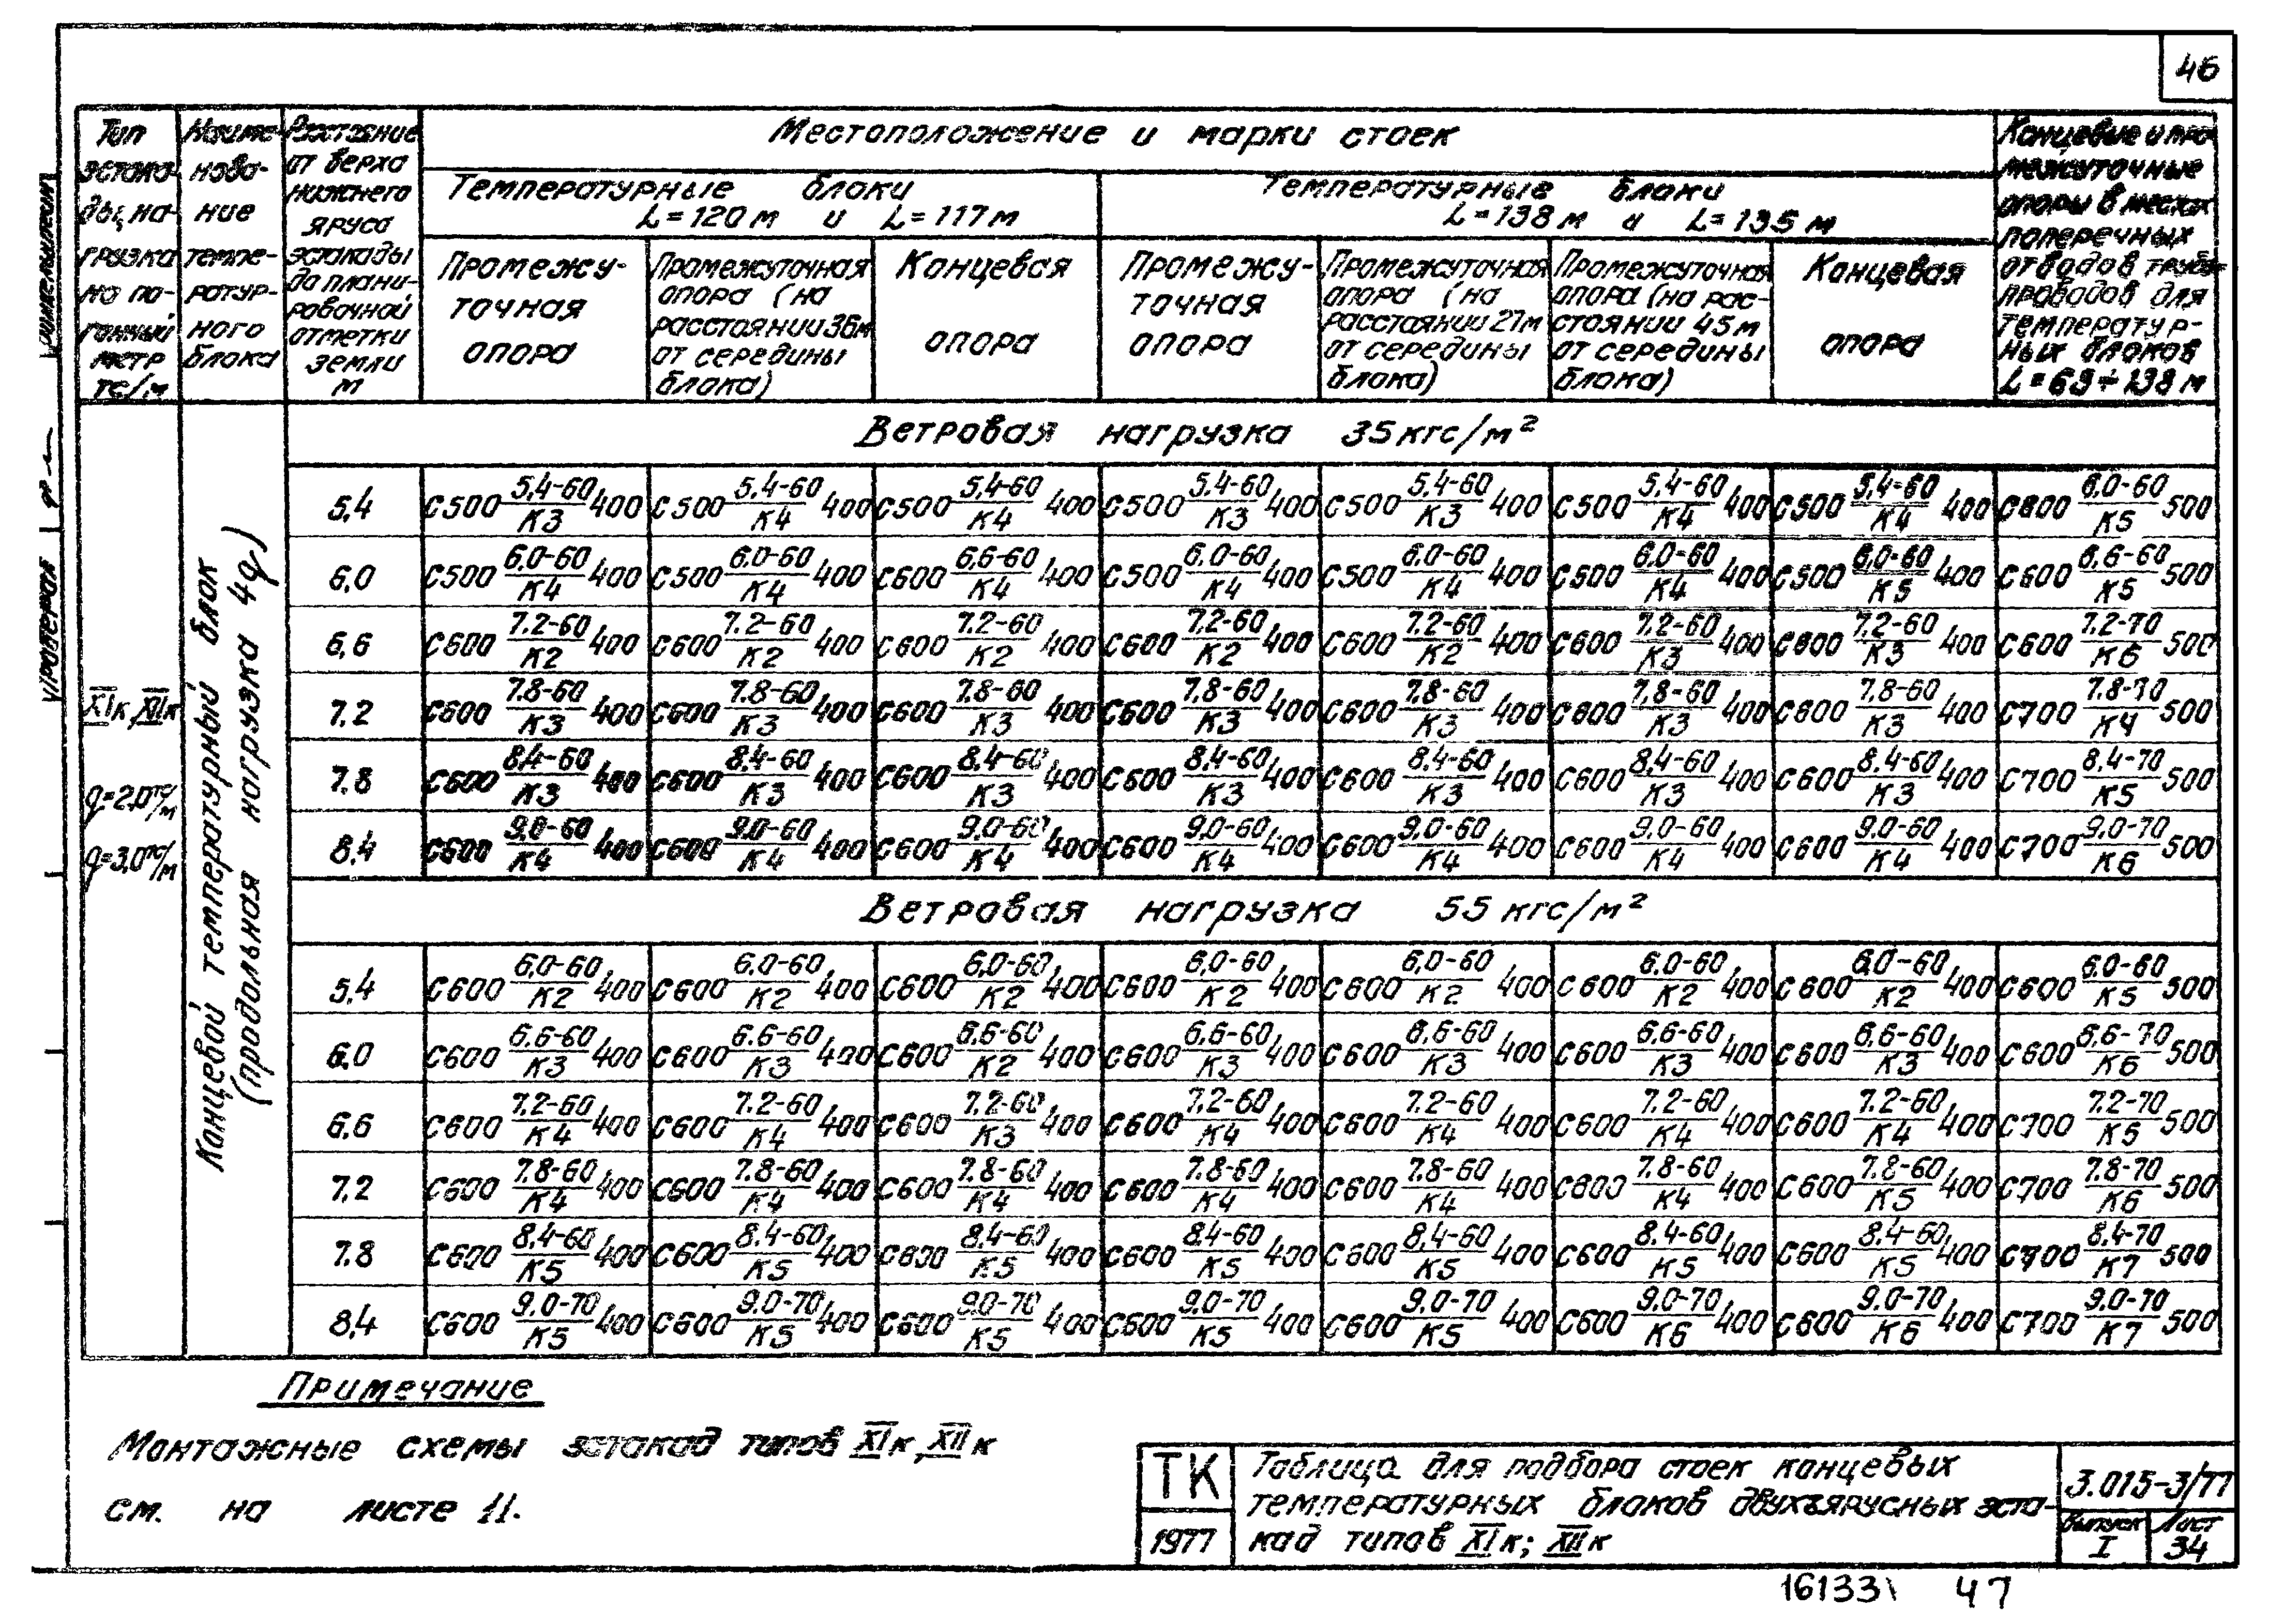 46
Тип эстакады, нагрузка на погонный метр тс/м
Наименование температурного блока
Расстояние от верха нижнего яруса эстакады до планировочной отметки земли м
Местоположение и марки стоек
Температурные блоки
L=120м и L=117м
Температурные блоки
L=138м и L=135м
Концевые и промежуточные опоры в местах поперечных отводов трубопроводов для температурных блоков L=69÷138м
Промежуточная опора
Промежуточная опора (на расстоянии 36м от середины блока)
Концевая опора
Промежуточная опора
Промежуточная опора (на расстоянии 27м от середины блока)
Промежуточная опора (на расстоянии 45м от середины блока)
Концевая опора
XIк, XIIк
q=2,0тс/м
q=3,0тс/м
Концевой температурный блок
(продольная нагрузка 4q)
Ветровая нагрузка 35кгс/м²
5,4 С500 5,4-60/К3 400 С500 5,4-60/К4 400 С500 5,4-60/К4 400 С500 5,4-60/К3 400 С500 5,4-60/К3 400 С500 5,4-60/К4 400 С500 5,4-60/К4 400 С600 6,0-60/К5 500
6,0 С500 6,0-60/К4 400 С500 6,0-60/К4 400 С600 6,6-60/К4 400 С500 6,0-60/К4 400 С500 6,0-60/К4 400 С500 6,0-60/К4 400 С500 6,0-60/К5 400 С600 6,6-60/К5 500
6,6 С600 7.2-60/К2 400 С600 7.2-60/К2 400 С600 7.2-60/К2 400 С600 7.2-60/К2 400 С600 7.2-60/К2 400 С600 7.2-60/К3 400 С600 7.2-60/К3 400 С600 7.2-70/К6 500
7.2 С600 7.8-60/К3 400 С600 7.8-60/К3 400 С600 7.8-60/К3 400 С600 7.8-60/К3 400 С600 7.8-60/К3 400 С600 7.8-60/К3 400 С600 7.8-60/К3 400 С700 7.8-70/К4 500
7.8 С600 8,4-60/К3 400 С600 8,4-60/К3 400 С600 8,4-60/К3 400 С600 8,4-60/К3 400 С600 8,4-60/К3 400 С600 8,4-60/К3 400 С600 8,4-60/К3 400 С700 8,4-70/К5 500
8,4 С600 9,0-60/К4 400 С600 9,0-60/К4 400 С600 9,0-60/К4 400 С600 9,0-60/К4 400 С600 9,0-60/К4 400 С600 9,0-60/К4 400 С600 9,0-60/К4 400 С700 9,0-70/К6 500
Ветровая нагрузка 55 кгс/м²
5,4 С600 6,0-60/К2 400 С600 6,0-60/К2 400 С600 6,0-60/К2 400 С600 6,0-60/К2 400 С600 6,0-60/К2 400 С600 6,0-60/К2 400 С600 6,0-60/К2 400 С600 6,0-60/К5 500
6,0 С600 6,6-60/К3 400 С600 6,6-60/К3 400 С600 6,6-60/К2 400 С600 6,6-60/К3 400 С600 6,6-60/К3 400 С600 6,6-60/К3 400 С600 6,6-60/К3 400 С600 6,6-70/К6 500
6,6 С600 7.2-60/К4 400 С600 7.2-60/К4 400 С600 7.2-60/К3 400 С600 7.2-60/К4 400 С600 7.2-60/К4 400 С600 7.2-60/К4 400 С600 7.2-60/К4 400 С700 7.2-70/К5 500
7.2 С600 7.8-60/К4 400 С600 7.8-60/К4 400 С600 7.8-60/К4 400 С600 7.8-60/К4 400 С600 7.8-60/К4 400 С600 7.8-60/К4 400 С600 7.8-60/К5 400 С700 7.8-70/К6 500
7.8 С600 8,4-60/К5 400 С600 8,4-60/К5 400 С600 8,4-60/К5 400 С600 8,4-60/К5 400 С600 8,4-60/К5 400 С600 8,4-60/К5 400 С600 8,4-60/К5 400 С700 8,4-70/К7 500
8,4 С600 9,0-70/К5 400 С600 9,0-70/К5 400 С600 9,0-70/К5 400 С600 9,0-70/К5 400 С600 9,0-70/К5 400 С600 9,0-70/К6 400 С600 9,0-70/К6 400 С700 9,0-70/К7 500
Примечание
Монтажные схемы эстакад типов XIк, XIIк
см. на листе 11.
ТК
1977
Таблица для подбора стоек концевых
температурных блоков двухъярусных эста-
кад типов XIк; XIIк
3.015-3/77
Выпуск I
Лист 34
16133 47